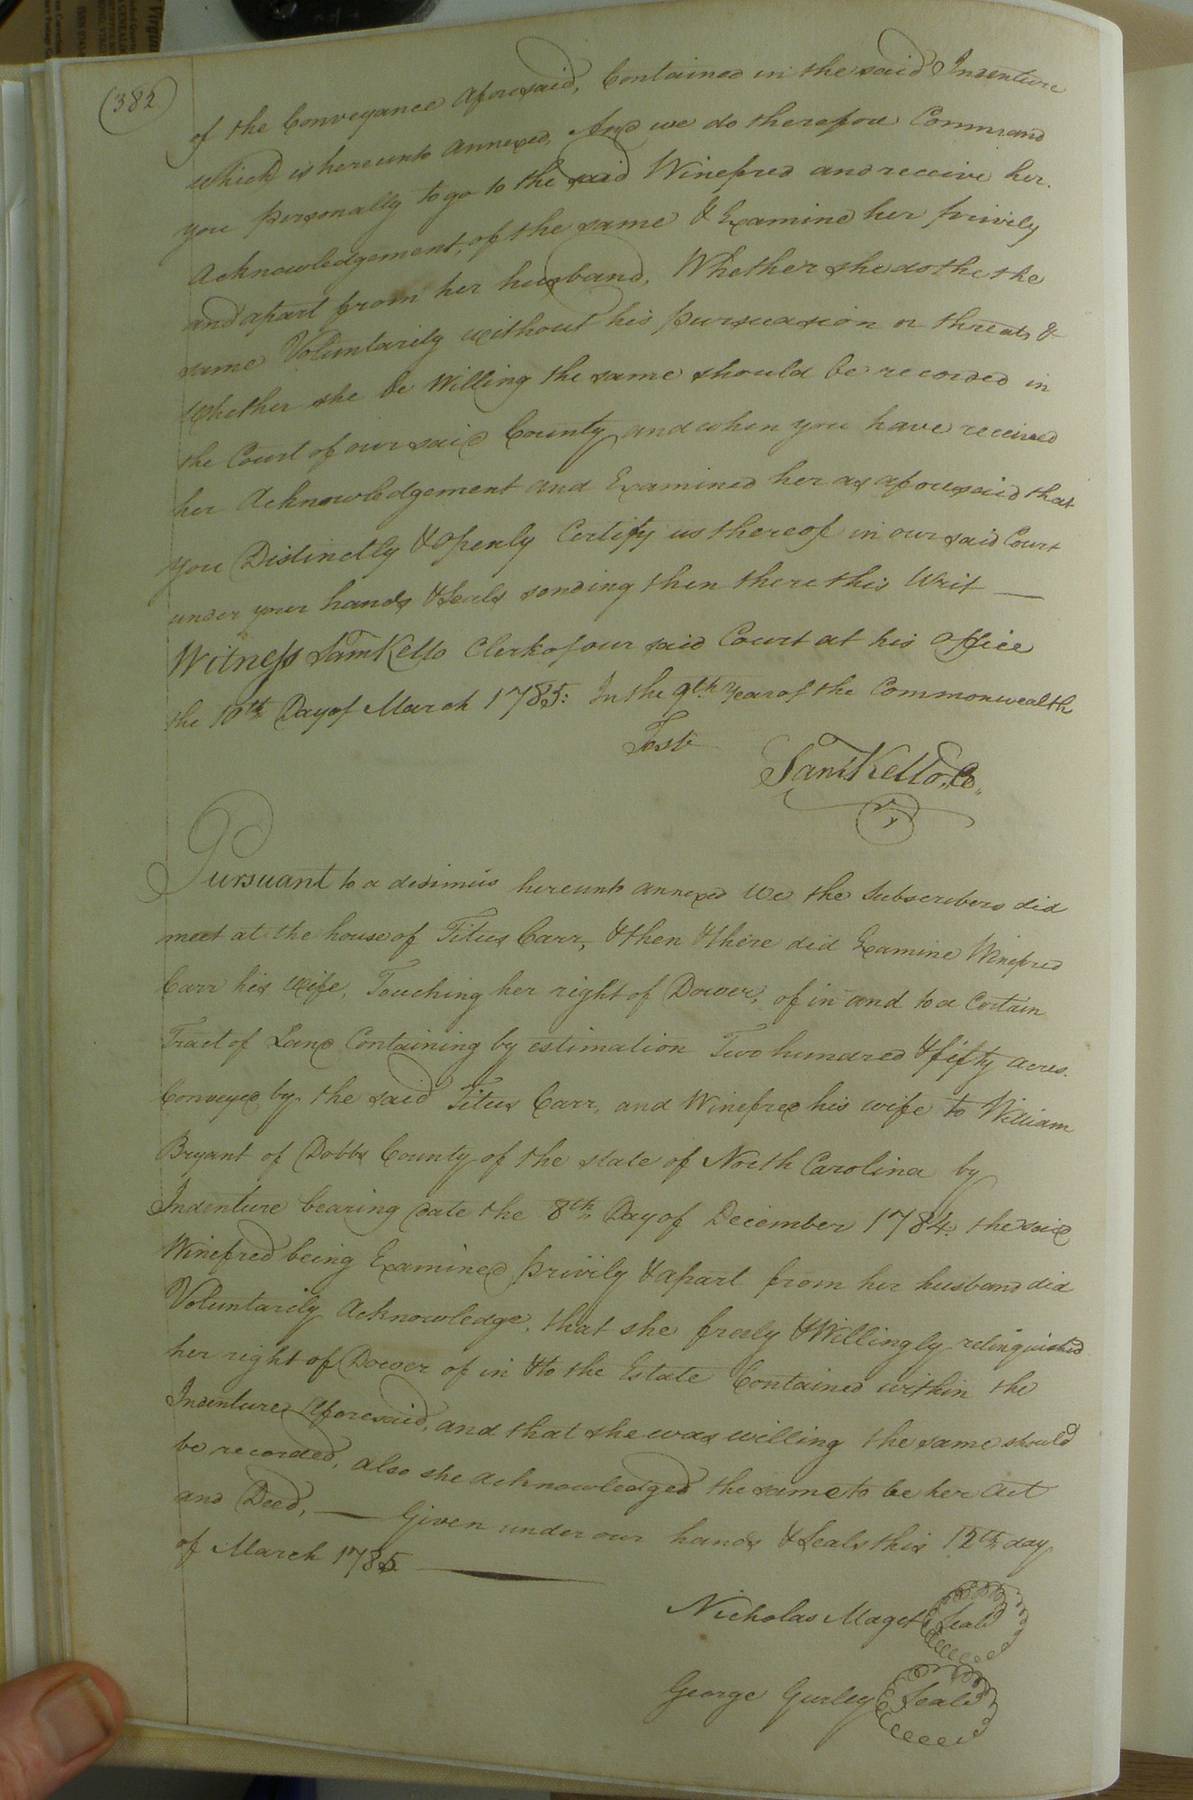 (382)
of the Conveyance aforesaid, Contained in the said Indenture
which is hereunto annexed, And we do therefore Command
you personally to go to the said Winefred and receive her
Acknowledgement, of the same & Examine her privily
and apart from her husband, Whether she do the the
same Voluntarily without his pursuasion or threats &
whether she be Willing the same should be recorded in
the Court of our said County, and when you have received
her Acknowledgement and Examined her as aforesaid that
you Distinctly & openly Certify us thereof in our said Court
under your hands & Seals sending then there this Writ —
Witness Sam Kello Clerk of our said Court at his office
the 10th Day of March 1785: In the 9th Year of the Commonwealth
Teste
Sam Kello, C
Pursuant to a desimus hereunto annexed We the Subscribers did
meet at the house of Titus Carr, & then & there did Examine Winefred
Carr his wife, Touching her right of Dower, of in and to a Certain
Tract of Land Containing by estimation Two hundred & fifty acres.
Conveyed by the said Titus Carr, and Winefred his wife to William
Bryant of Dobbs County of the state of North Carolina by
Indenture bearing date the 8th Day of December 1784. the said
Winefred being Examined privily & apart from her husband did
Voluntarily Acknowledge, that she freely & Willingly relinquished
her right of Dower of in & to the Estate Contained within the
Indenture Aforesaid, and that she was willing the same should
be recorded, also she acknowledged the same to be her act
and Deed, — Given under our hands & Seals this 12th day
of March 1785. —
Nicholas Maget Seal
George Gurley Seal